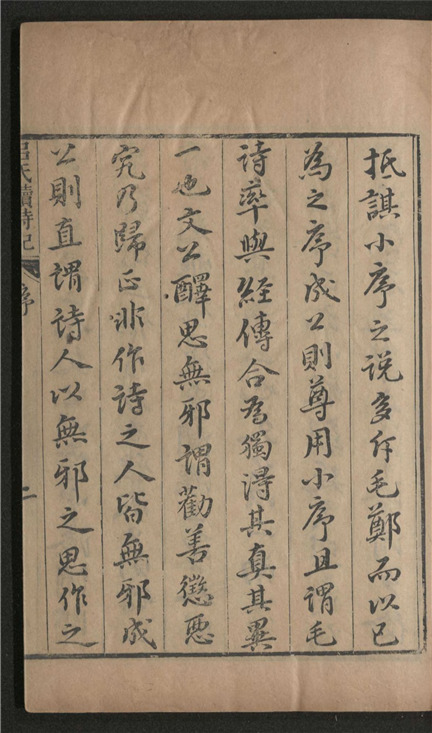 抵諆小序之説多斥毛鄭而以己
為之序成公則尊用小序且謂毛
詩率與經傳合為獨得其真其異
一也文公釋思無邪謂勸善懲惡
究乃歸正非作詩之人皆無邪成
公則直謂詩人以無邪之思作之
呂氏讀詩記
序
二